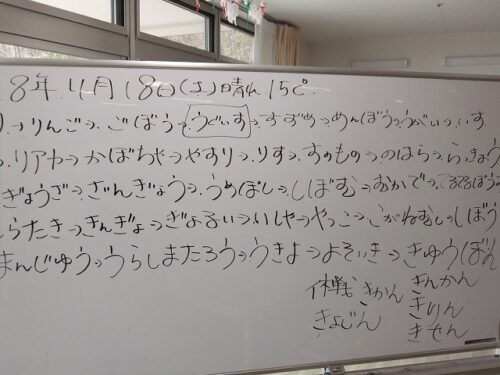 8年4月18日(土)晴れ 15℃
り→りんご→ごぼう→うぐいす→すずめ→めんぼう→うがい→いす
→リアカー→かぼちゃ→やすり→りす→すのもの→のはら→らっきょう
ぎょうざ→ざんぎょう→うめぼし→しぼむ→むかで→
らたき→きんぎょ→ぎょるい→いしゃ→やっこ→こがねむし→しぼう
まんじゅう→うらしまたろう→うきよ→よそいき→きゅうぼん
作戦 きかん きんかん
きょじん きりん
きせん